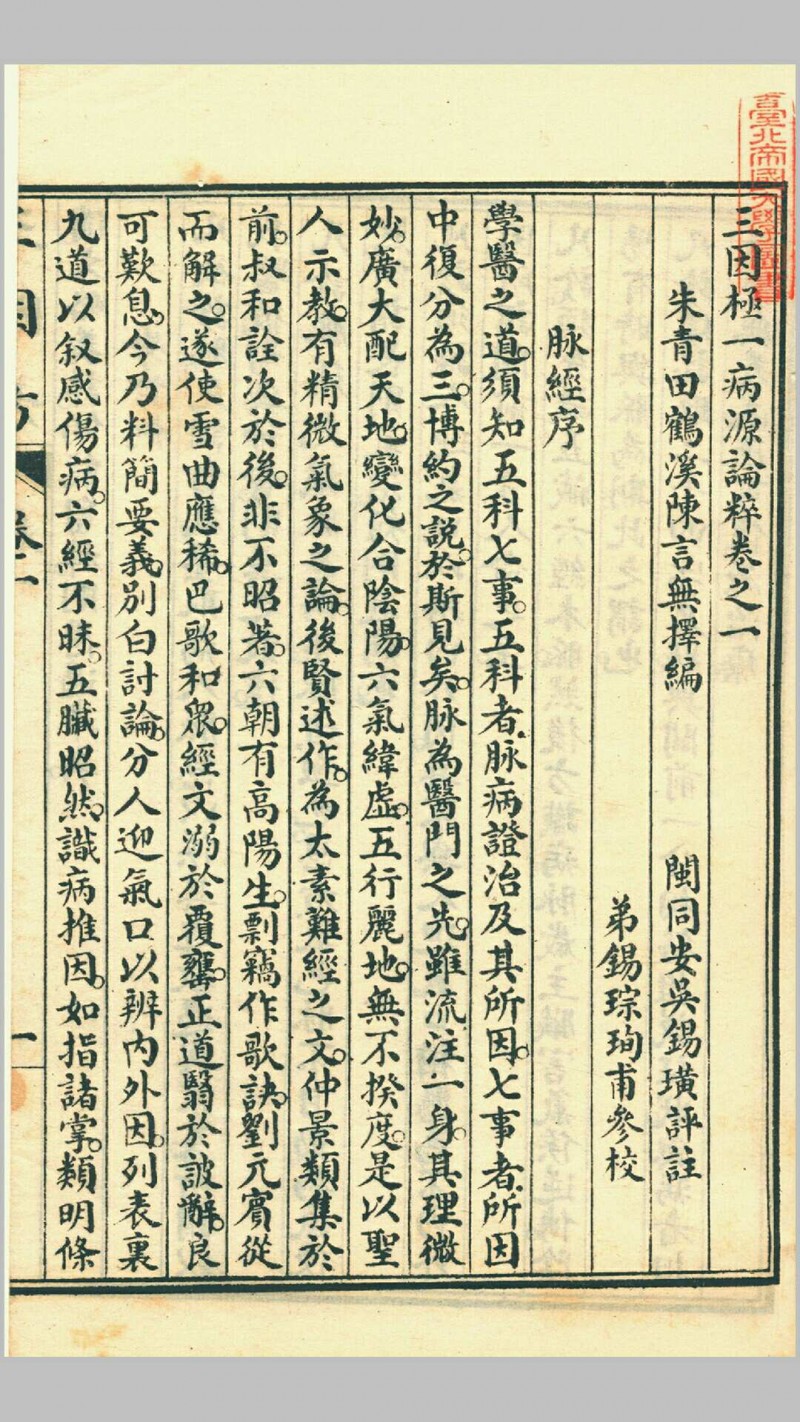 臺北帝國大學圖書
三因極一病源論粹卷之一
朱青田鶴溪陳言無擇編 閩同安吳錫璜評註
弟錫琮珣甫參校
脉經序
學醫之道。須知五科七事。五科者。脉病證治及其所因。七事者。所因
中復分為三。博約之說。於斯見矣。脉為醫門之先。雖流注一身。其理微
妙。廣大配天地。變化合陰陽。六氣緯虛。五行麗地。無不揆度。是以聖
人示教。有精微氣象之論。後賢述作。為太素難經之文。仲景類集於
前。叔和詮次於後。非不昭著。六朝有高陽生。剽竊作歌訣。劉元賓從
而解之。遂使雪曲應稀。巴歌和眾。經文溺於覆甕。正道翳於詖辭。良
可歎息。今乃料簡要義。別白討論。分人迎氣口以辨內外因。列表裏
九道以叙感傷病。六經不昧。五臟昭然。識病推因。如指諸掌。類明條
三因方 卷一 一